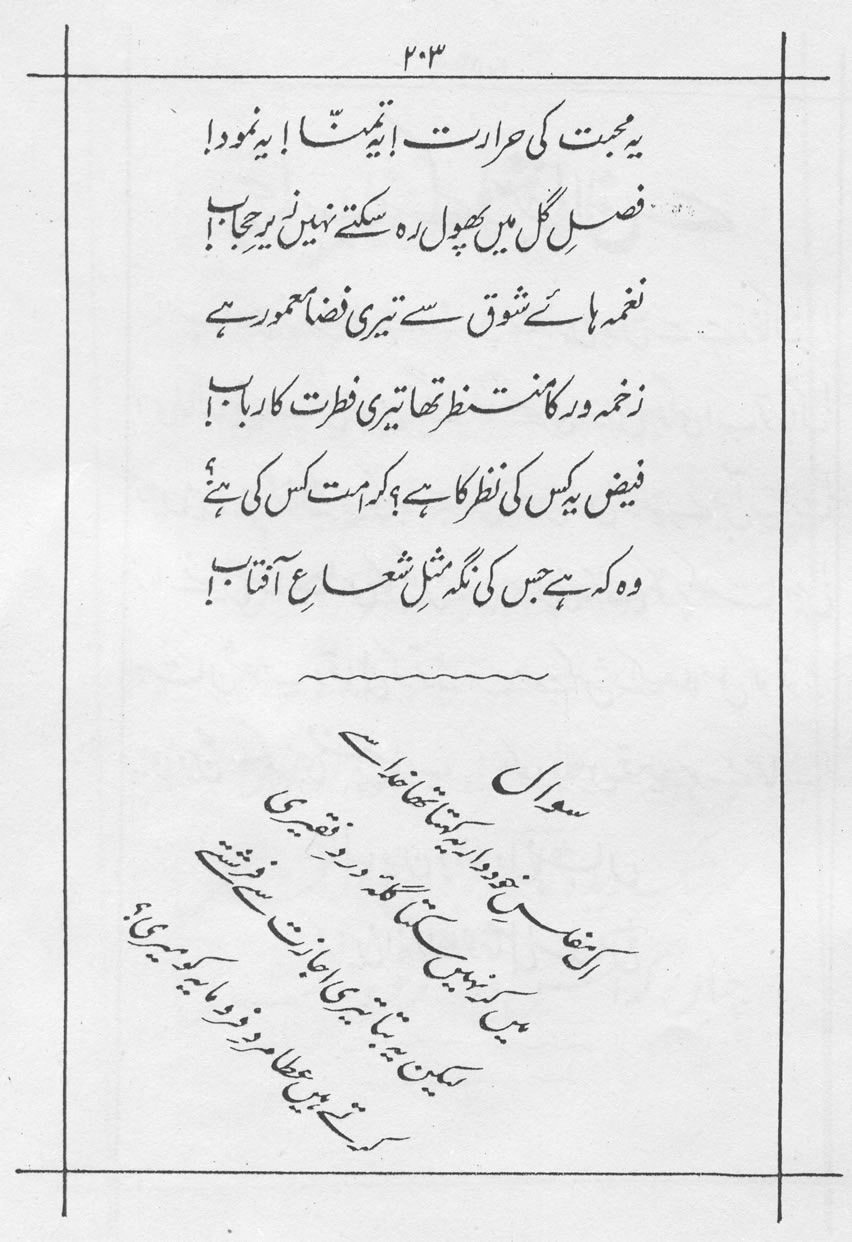 ۲۰۳
یہ محبت کی حرارت! یہ تمنّا! یہ نمود!
فصلِ گل میں پھول رہ سکتے نہیں زیرِ حجاب!
نغمہ ہائے شوق سے تیری فضا معمور ہے
زخمہ ور کا منتظر تھا تیری فطرت کا رباب!
فیض یہ کس کی نظر کا ہے؟ کرامت کس کی ہے؟
وہ کہ ہے جس کی نگہ مثلِ شعاعِ آفتاب!
سوال
اک مفلسِ خود دار یہ کہتا تھا خدا سے
میں کر نہیں سکتا گلۂ دردِ فقیری
لیکن یہ بتا تیری اجازت سے فرشتے
کرتے ہیں عطا مردِ فرومایہ کو میری؟